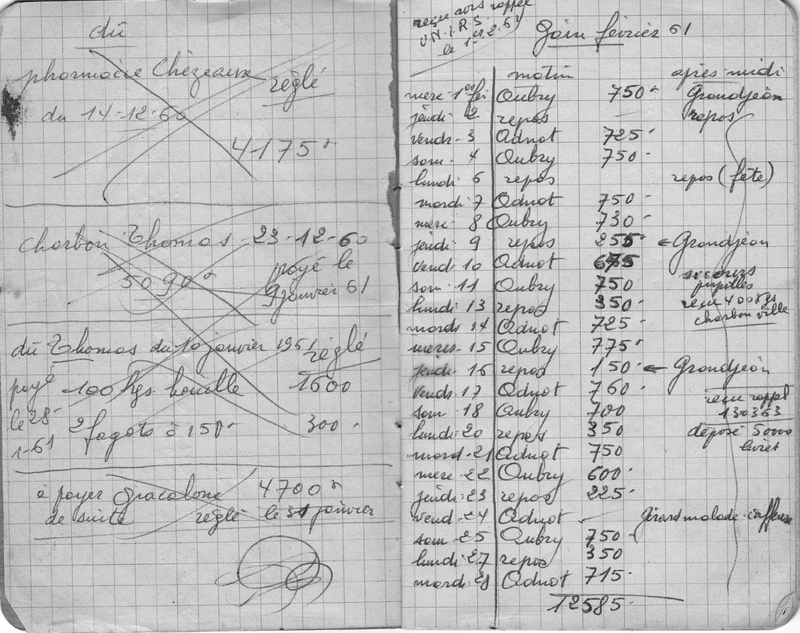 dû
pharmacie Chézeaux réglé
du 14-12-60
4175
charbon Thomas 23-12-60
5090 payé le
9 janvier 61
dû Thomas du 10 janvier 1961 réglé
payé 100 kgs houille 1600
le 28-1-61 2 fagots à 150 300
à payer Giacobone 4700
de suite réglé le 31 janvier
reçu avis rappel
U.N.I.R.S
le 1-2-61
Gain février 61
matin après midi
merc-1er fév Aubry 750 Grandjean
jeudi 2 repos repos
vendr-3 Adnot 725
sam-4 Aubry 750
lundi 6 repos repos (fête)
mardi 7 Adnot 750
merc-8 Aubry 730
jeudi 9 repos 255 ← Grandjean
vend-10 Adnot 675 secours
sam-11 Aubry 750 pupilles
lundi 13 repos 350 reçu 400 kgs
mardi 14 Adnot 725 charbon ville
merc-15 Aubry 775
jeudi-16 repos 150 ← Grandjean
vend-17 Adnot 760 reçu rappel
sam-18 Aubry 700 130363
lundi 20 repos 350 déposé 50000
mard-21 Adnot 750 livret
merc-22 Aubry 600
jeudi 23 repos 225
vend-24 Adnot - Gérard malade
sam-25 Aubry 750
lundi 27 repos 350
mardi 28 Adnot 715
12585